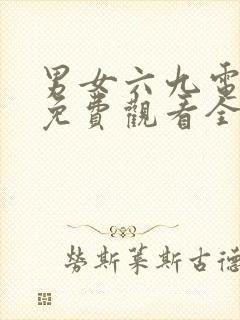 男女六九電
免費觀看全
勞斯萊斯古德